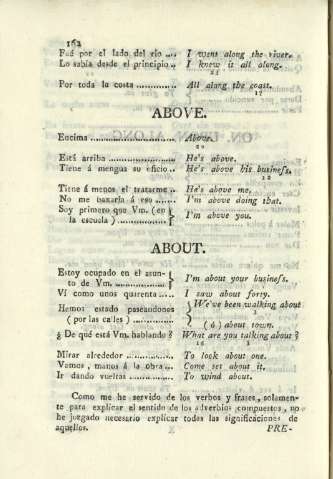 162
Fuí por el lado del río .... I went along the river.
Lo sabía desde el principio .. I knew it all along.
21
Por toda la costa ............. All along the coast.
17
ABOVE.
Encima ..................... Above.
20
Está arriba ................... He's above.
Tiene á mengua su oficio .. He's above his business.
12
Tiene á menos el tratarme .. He's above me.
No me baxaría á eso ....... I'm above doing that.
Soy primero que Vm. (en
la escuela) ................ I'm above you.
ABOUT.
Estoy ocupado en el asun-
to de Vm. ................ I'm about your business.
Ví como unos quarenta ..... I saw about forty.
Hemos estado paseandonos We've been walking about
(por las calles) .......... (ó) about town.
¿ De qué está Vm. hablando ? What are you talking about ?
16
Mirar alrededor .............. To look about one.
Vamos, manos á la obra ... Come set about it.
Ir dando vueltas ............. To wind about.
Como me he servido de los verbos y frases, solamen-
te para explicar el sentido de los adverbios compuestos, no
he juzgado necesario explicar todas las significaciones de
aquellos. PRE-